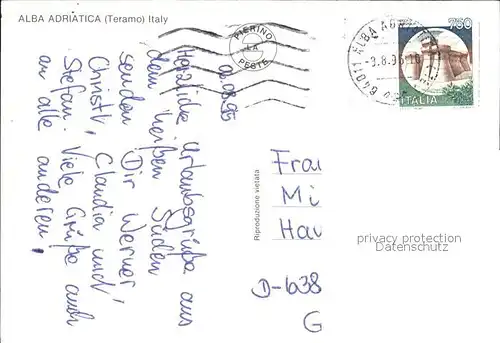 ALBA ADRIATICA (Teramo) Italy
PIERINO
LA
PESTE
64011 ALBA ADR
-9.8.95-10
750
ITALIA
02.08.95
Herzliche Urlaubsgrüße aus
dem heißen Süden
senden Dir Werner,
Christl, Claudia und
Stefan. Viele Grüße auch
an alle anderen!
Riproduzione vietata
Frau
Mi
Hau
D-638
G
privacy protection
Datenschutz